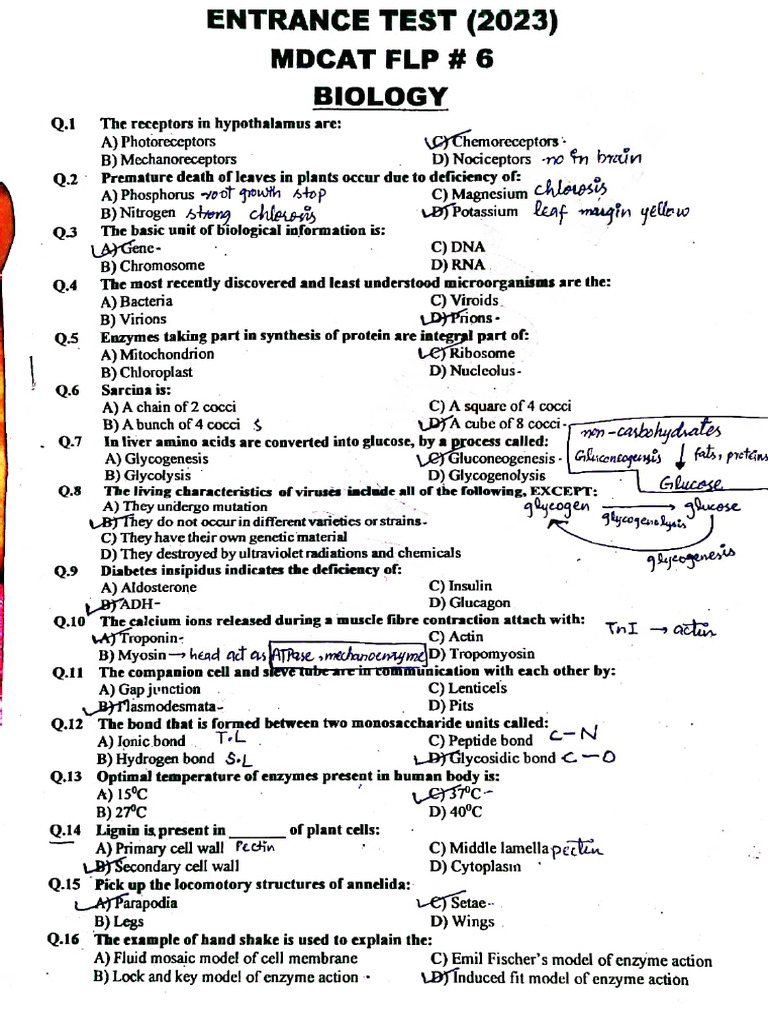 ENTRANCE TEST (2023)
MDCAT FLP # 6
BIOLOGY
Q.1 The receptors in hypothalamus are:
A) Photoreceptors C) Chemoreceptors -
B) Mechanoreceptors D) Nociceptors -no in brain
Q.2 Premature death of leaves in plants occur due to deficiency of:
A) Phosphorus -root growth stop C) Magnesium chlorosis
B) Nitrogen strong chlorosis D) Potassium leaf margin yellow
Q.3 The basic unit of biological information is:
A) Gene- C) DNA
B) Chromosome D) RNA
Q.4 The most recently discovered and least understood microorganisms are the:
A) Bacteria C) Viroids
B) Virions D) Prions -
Q.5 Enzymes taking part in synthesis of protein are integral part of:
A) Mitochondrion C) Ribosome
B) Chloroplast D) Nucleolus -
Q.6 Sarcina is:
A) A chain of 2 cocci C) A square of 4 cocci
B) A bunch of 4 cocci S D) A cube of 8 cocci -
non-carbohydrates
Q.7 In liver amino acids are converted into glucose, by a process called:
A) Glycogenesis C) Gluconeogenesis - Gluconeogensis ↓ fats, proteins
B) Glycolysis D) Glycogenolysis Glucose
Q.8 The living characteristics of viruses include all of the following, EXCEPT:
A) They undergo mutation glycogen → glucose
glycogenolysis
B) They do not occur in different varieties or strains -
C) They have their own genetic material
D) They destroyed by ultraviolet radiations and chemicals glycogenesis
Q.9 Diabetes insipidus indicates the deficiency of:
A) Aldosterone C) Insulin
B) ADH- D) Glucagon
Q.10 The calcium ions released during a muscle fibre contraction attach with: TnI → actin
A) Troponin- C) Actin
B) Myosin → head act as ATPase, mechanoenzyme D) Tropomyosin
Q.11 The companion cell and sieve tube are in communication with each other by:
A) Gap junction C) Lenticels
B) Plasmodesmata- D) Pits
Q.12 The bond that is formed between two monosaccharide units called:
A) Ionic bond T.L C) Peptide bond C-N
B) Hydrogen bond S.L D) Glycosidic bond C-O
Q.13 Optimal temperature of enzymes present in human body is:
A) 15⁰C C) 37⁰C -
B) 27⁰C D) 40⁰C
Q.14 Lignin is present in _______ of plant cells:
A) Primary cell wall Pectin C) Middle lamella pectin
B) Secondary cell wall D) Cytoplasm
Q.15 Pick up the locomotory structures of annelida:
A) Parapodia C) Setae -
B) Legs D) Wings
Q.16 The example of hand shake is used to explain the:
A) Fluid mosaic model of cell membrane C) Emil Fischer's model of enzyme action
B) Lock and key model of enzyme action D) Induced fit model of enzyme action